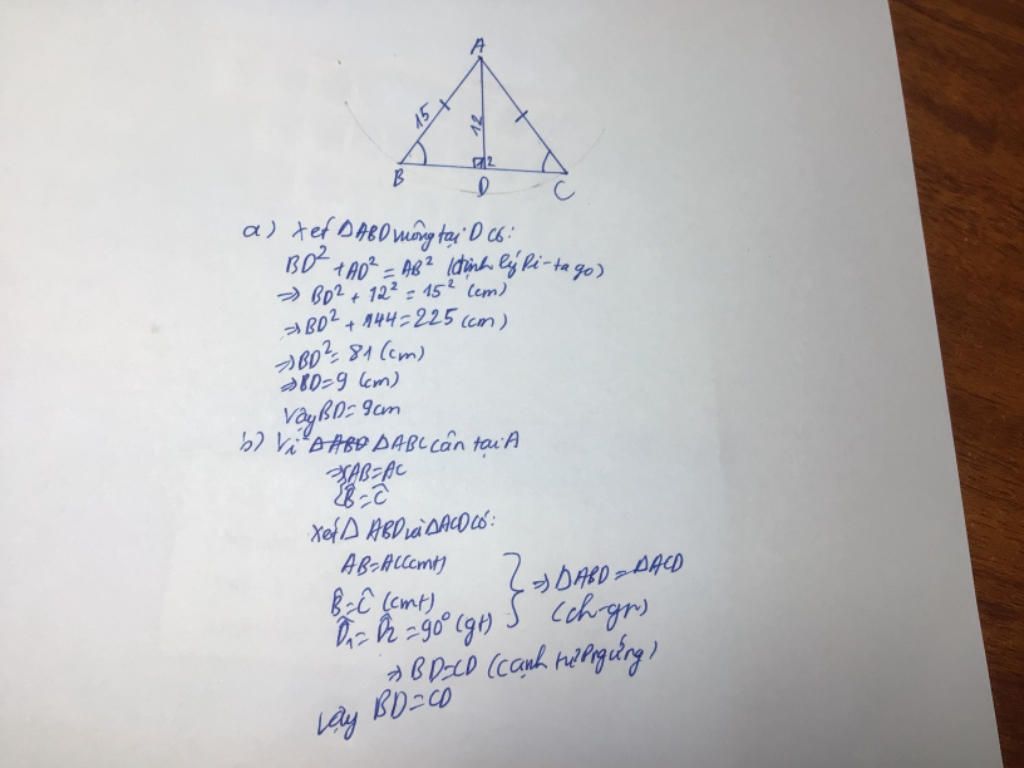 A
15
12
2
B
D
C
a) Xét ΔABD vuông tại D có:
BD² + AD² = AB² (định lý Pi-ta go)
⇒ BD² + 12² = 15² (cm)
⇒ BD² + 144 = 225 (cm)
⇒ BD² = 81 (cm)
⇒ BD = 9 (cm)
Vậy BD = 9cm
b) Vì ΔABD ΔABC cân tại A
⇒ { AB = AC
B̂ = Ĉ
Xét Δ ABD và ΔACD có:
AB = AC (cmt)
B̂ = Ĉ (cmt) } ⇒ ΔABD = ΔACD
D̂₁ = D̂₂ = 90° (gt) (ch-gn)
⇒ BD = CD (cạnh tương ứng)
Vậy BD = CD